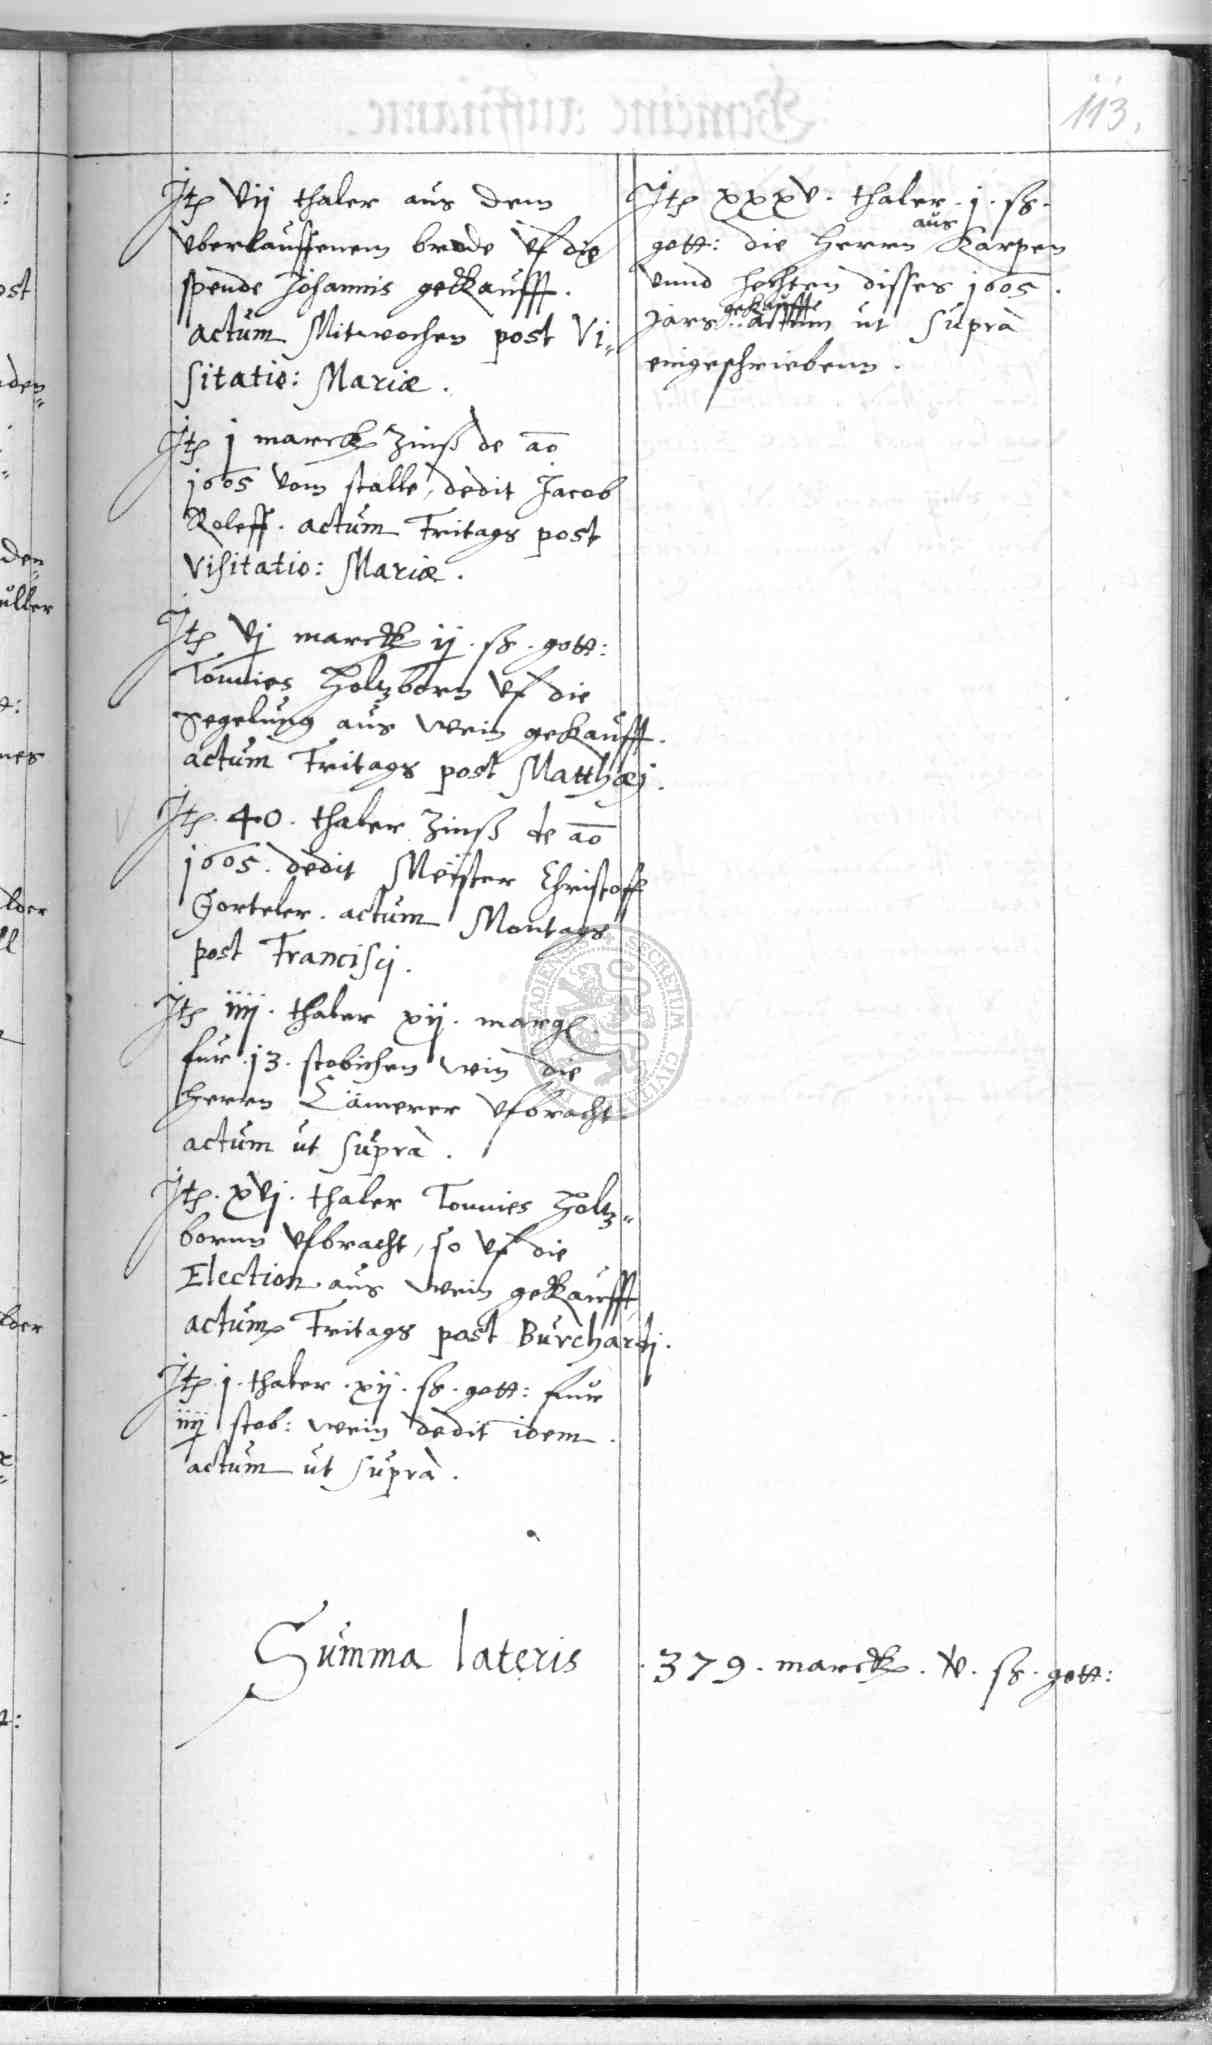 113.
Itp vij thaler aus dem
vberlauffenem brode vf die
spende Johannis gekaufft.
actum Mitwochen post Vi-
sitatio: Mariæ.
Itp j marck Zinß de ao
1605 vom stalle, dedit Jacob
Roleff. actum Fritags post
Visitatio: Mariæ.
Itp vj marck ij. ß. gott:
Tonnies Holtzborn vf die
Segelung aus wein gekaufft.
actum Fritags post Matthæj.
Itp. 40. thaler Zinß de ao
1605. dedit Meister Christoff
Gorteler. actum Montags
post Francisij.
Itp iiij. thaler xij. marg
fur. 13. stobichen win die
herrn Cämerer vfbracht
actum ut supra.
Itp. xvj. thaler Tonnies Holtz-
bornn vfbracht, so vf die
Election aus wein gekaufft
actum Fritags post Burchardj.
Itp. j. thaler. xij. ß. gott: fuur
iiij stob: wein dedit idem.
actum ut supra.
Itp xxxv. thaler. j. ß.
gott: die herrn aus Karpen
vnnd hechten disses 1605.
Jars gekaufft actum ut supra
eingeschriebenn.
Summa lateris . 379. marck. v. ß. gott:
SECRETUM CIVITA